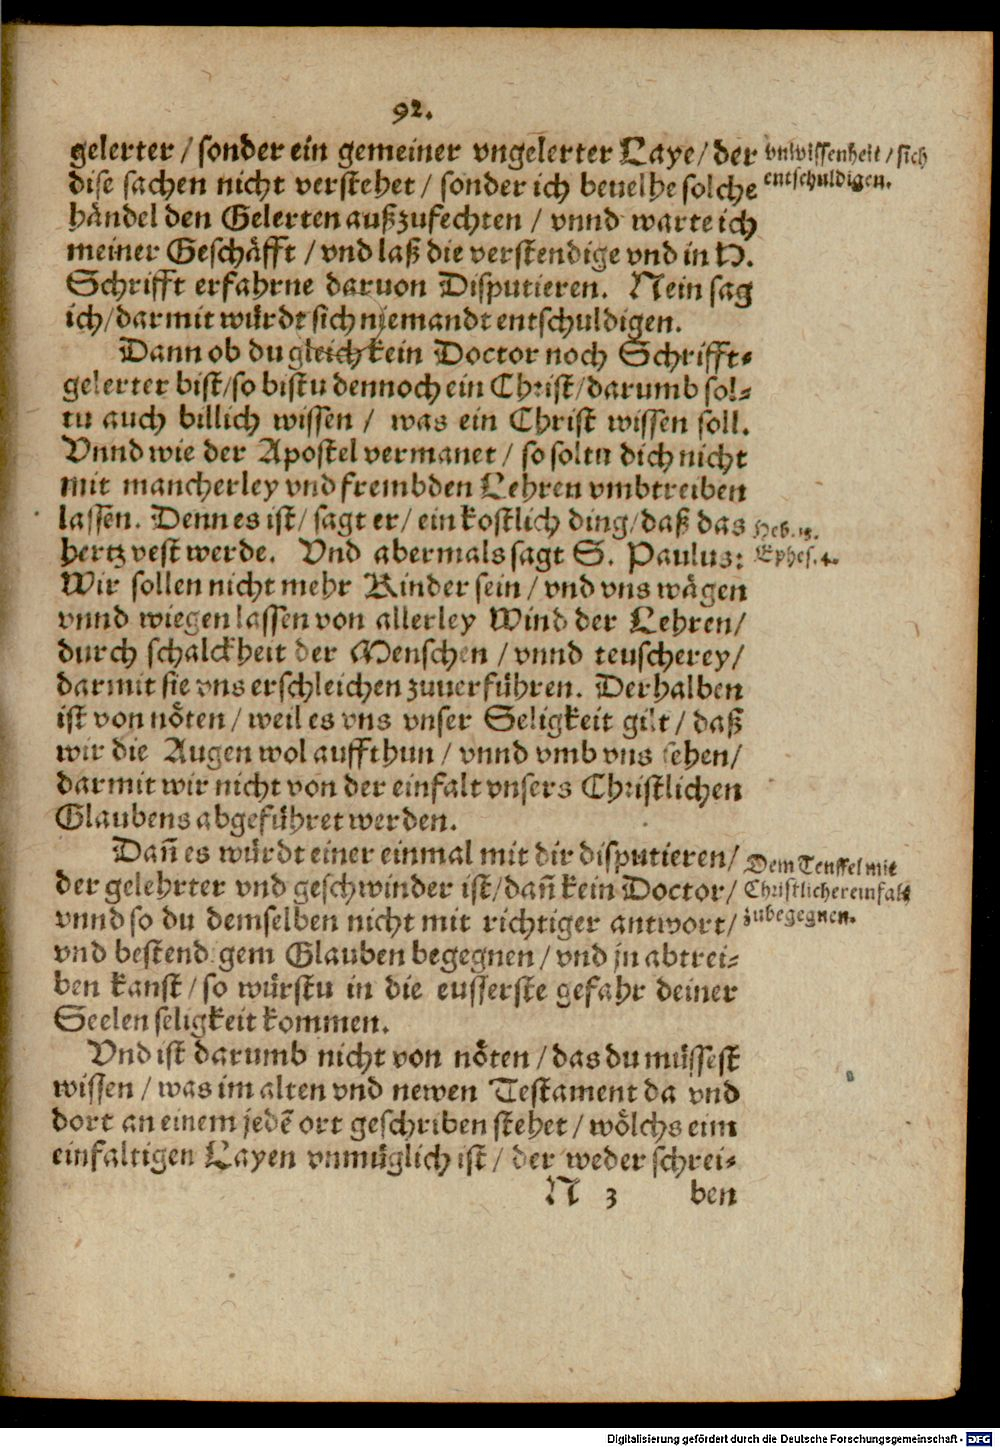 92.
gelerter / sonder ein gemeiner vngelerter Laye / der
dise sachen nicht verstehet / sonder ich beuelhe solche
händel den Gelerten außzufechten / vnnd warte ich
meiner Geschäfft / vnd laß die verstendige vnd in H.
Schrifft erfahrne daruon Disputieren. Nein sag
ich / darmit würdt sich niemandt entschuldigen.
vnwissenheit / sich
entschuldigen.
Dann ob du gleich kein Doctor noch Schrifft⸗
gelerter bist / so bistu dennoch ein Christ / darumb sol⸗
tu auch billich wissen / was ein Christ wissen soll.
Vnnd wie der Apostel vermanet / so soltu dich nicht
mit mancherley vnd frembden Lehren vmbtreiben
lassen. Denn es ist / sagt er / ein kostlich ding / daß das
hertz vest werde. Vnd abermals sagt S. Paulus:
Wir sollen nicht mehr Kinder sein / vnd vns wägen
vnnd wiegen lassen von allerley Wind der Lehren /
durch schalckheit der Menschen / vnnd teuscherey /
darmit sie vns erschleichen zuuerführen. Derhalben
ist von nöten / weil es vns vnser Seligkeit gilt / daß
wir die Augen wol auffthun / vnnd vmb vns sehen /
darmit wir nicht von der einfalt vnsers Christlichen
Glaubens abgeführet werden.
Heb. 13.
Ephes. 4.
Dañ es würdt einer einmal mit dir disputieren /
der gelehrter vnd geschwinder ist / dañ kein Doctor /
vnnd so du demselben nicht mit richtiger antwort /
vnd bestendigem Glauben begegnen / vnd jn abtrei⸗
ben kanst / so würstu in die eusserste gefahr deiner
Seelen seligkeit kommen.
Dem Teuffel mit
Christlicher einfalt
zubegegnen.
Vnd ist darumb nicht von nöten / das du müssest
wissen / was im alten vnd newen Testament da vnd
dort an einem jedē ort geschriben stehet / wölchs eim
einfaltigen Layen vnmüglich ist / der weder schrei⸗
N 3 ben
Digitalisierung gefördert durch die Deutsche Forschungsgemeinschaft - DFG